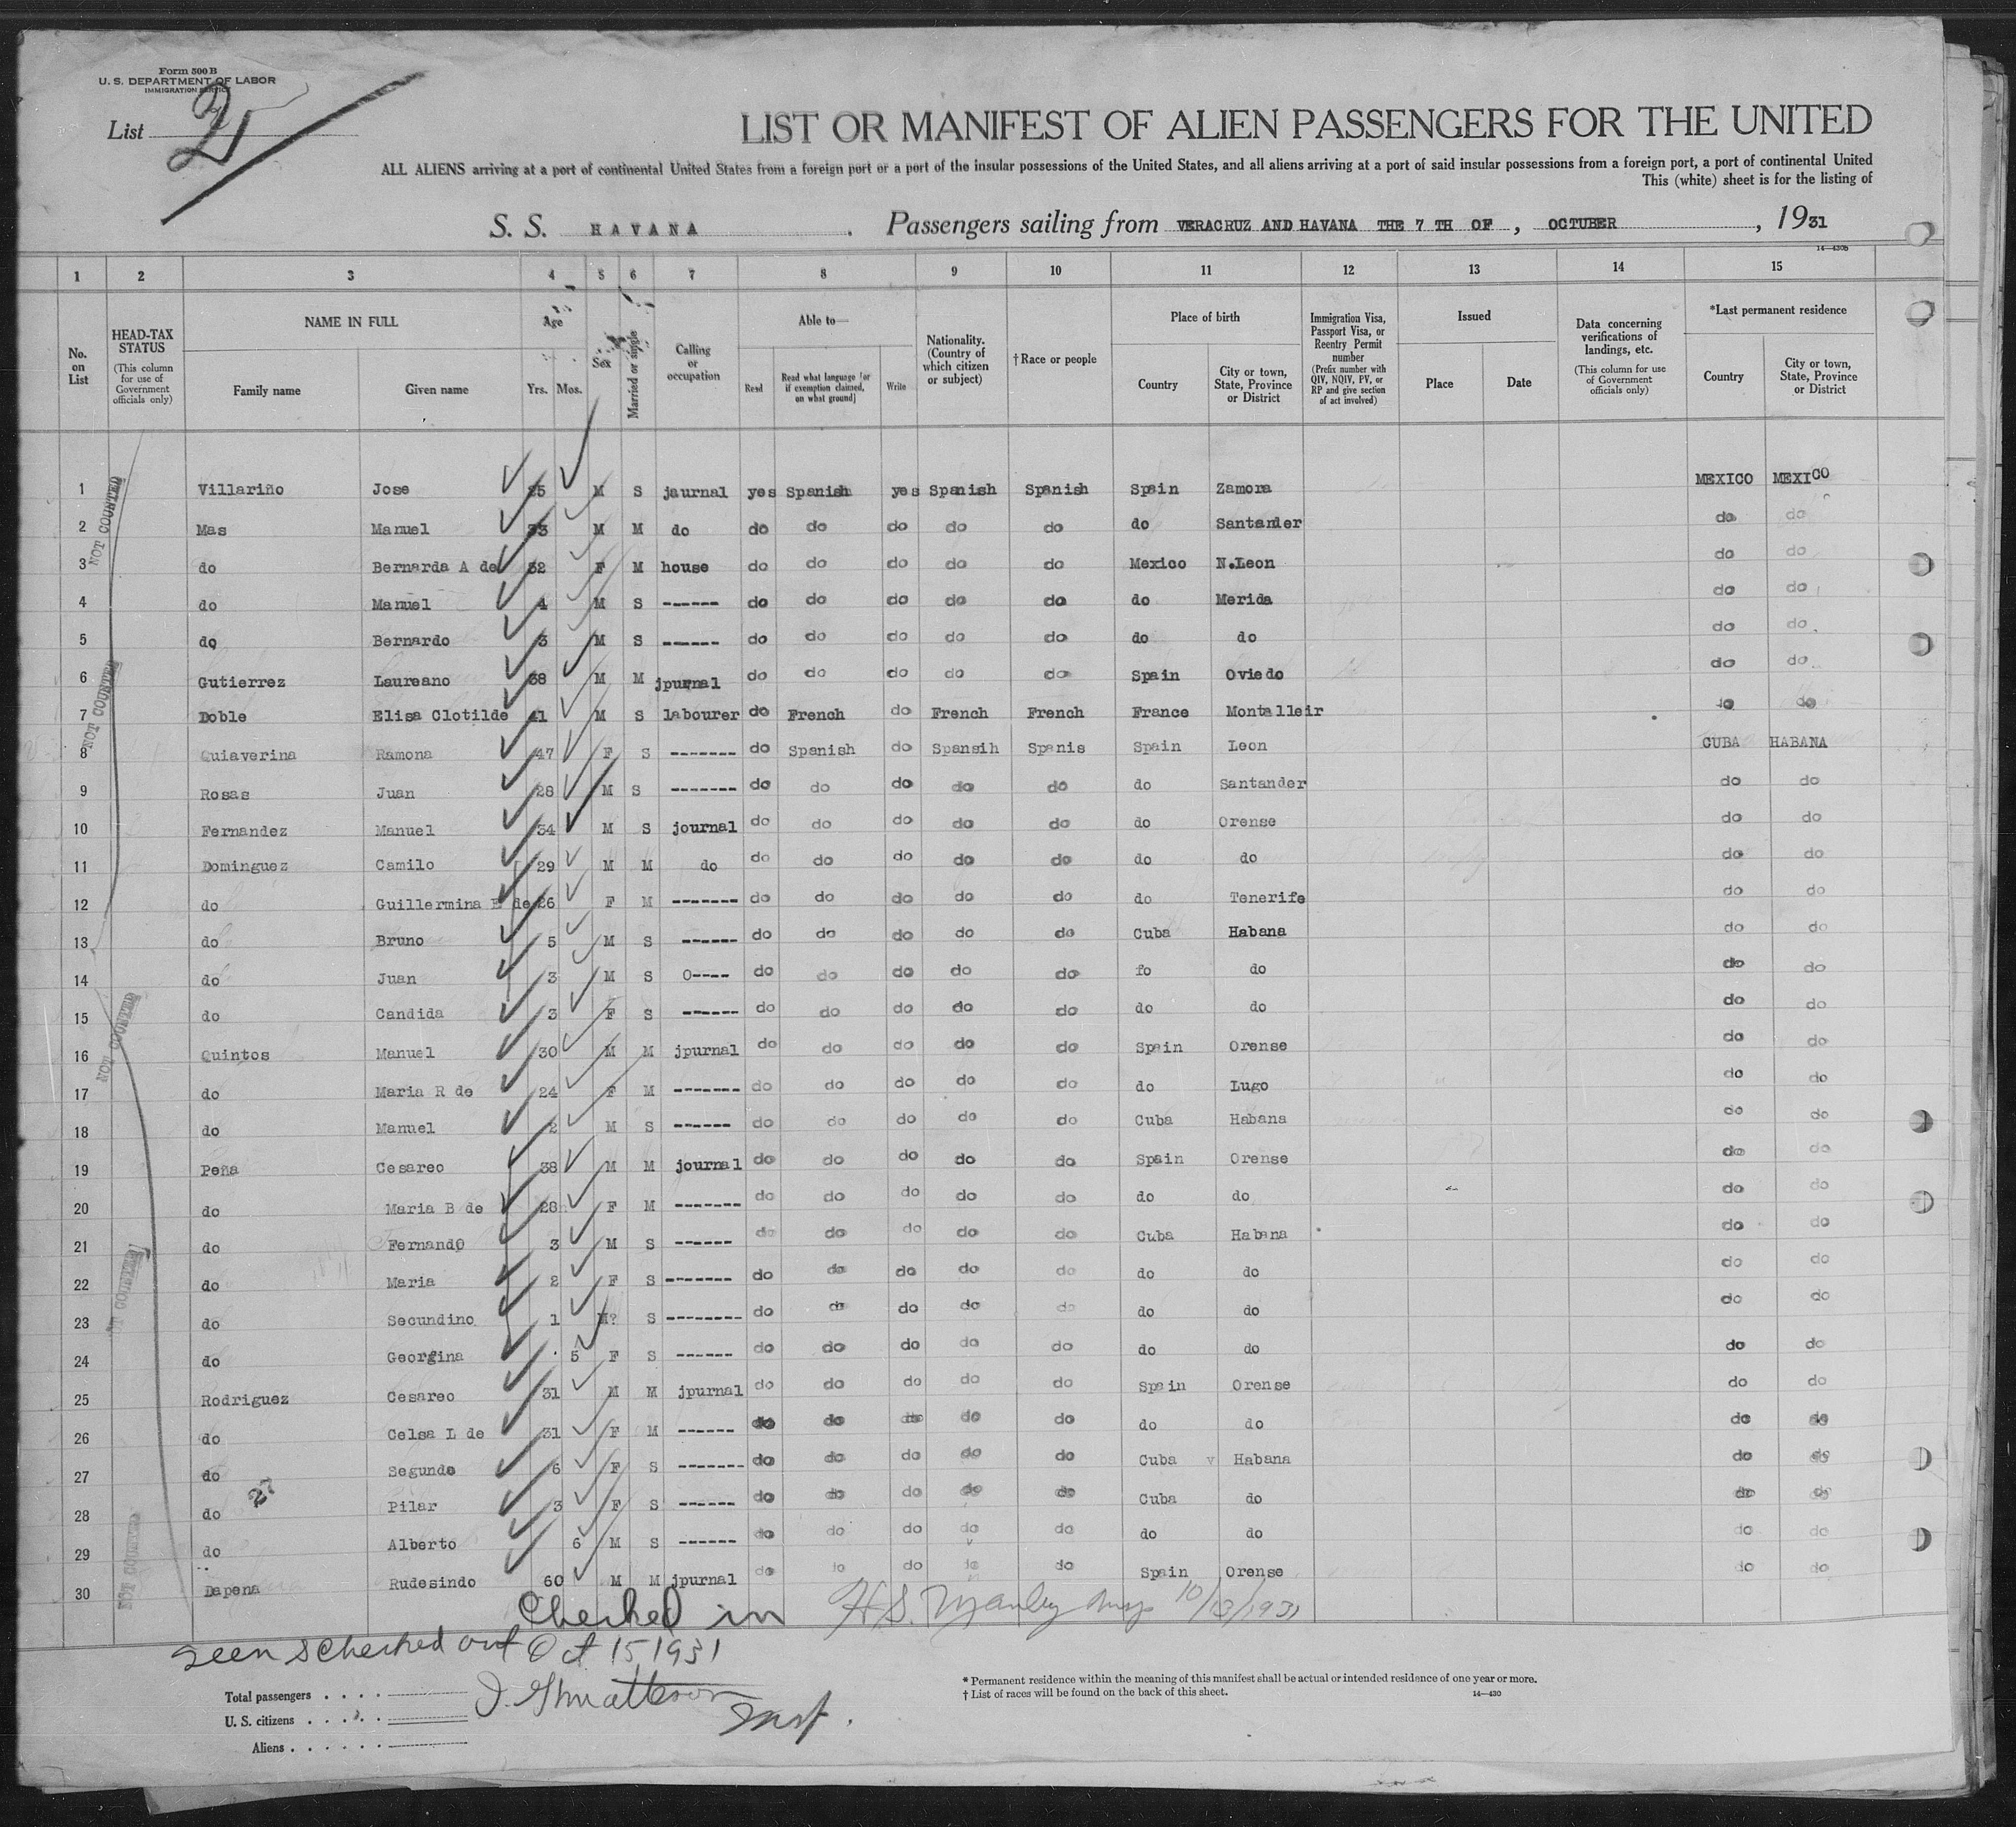 Form 500 B
U. S. DEPARTMENT OF LABOR
IMMIGRATION SERVICE
List 2
LIST OR MANIFEST OF ALIEN PASSENGERS FOR THE UNITED
ALL ALIENS arriving at a port of continental United States from a foreign port or a port of the insular possessions of the United States, and all aliens arriving at a port of said insular possessions from a foreign port, a port of continental United
This (white) sheet is for the listing of
S. S. HAVANA. Passengers sailing from VERACRUZ AND HAVANA THE 7 TH OF, OCTUBER, 1931
14—430b
1 2 3 4 5 6 7 8 9 10 11 12 13 14 15
No. on List
HEAD-TAX STATUS (This column for use of Government officials only)
NAME IN FULL Family name Given name
Age Yrs. Mos.
Sex
Married or single
Calling or occupation
Able to— Read Read what language [or if exemption claimed, on what ground] Write
Nationality. (Country of which citizen or subject)
†Race or people
Place of birth Country City or town, State, Province or District
Immigration Visa, Passport Visa, or Reentry Permit number (Prefix number with QIV, NQIV, PV, or RP and give section of act involved)
Issued Place Date
Data concerning verifications of landings, etc. (This column for use of Government officials only)
*Last permanent residence Country City or town, State, Province or District
1 Villariño Jose 35 M S jaurnal yes Spanish yes Spanish Spanish Spain Zamora MEXICO MEXICO
2 Mas Manuel 33 M M do do do do do do do Santander do do
3 do Bernarda A de 32 F M house do do do do do Mexico N.Leon do do
4 do Manuel 4 M S ------ do do do do do do Merida do do
5 do Bernardo 3 M S ------ do do do do do do do do do
6 Gutierrez Laureano 38 M M jpurnal do do do do do Spain Oviedo do do
7 Doble Elisa Clotilde 41 M S labourer do French do French French France Montalleir do do
8 Quiaverina Ramona 47 F S ------- do Spanish do Spansih Spanis Spain Leon CUBA HABANA
9 Rosas Juan 28 M S ------- do do do do do do Santander do do
10 Fernandez Manuel 34 M S journal do do do do do do Orense do do
11 Dominguez Camilo 29 M M do do do do do do do do do do
12 do Guillermina E de 26 F M ------- do do do do do do Tenerife do do
13 do Bruno 5 M S ------ do do do do do Cuba Habana do do
14 do Juan 3 M S O---- do do do do do fo do do do
15 do Candida 3 F S ------ do do do do do do do do do
16 Quintos Manuel 30 M M jpurnal do do do do do Spain Orense do do
17 do Maria R de 24 F M ------- do do do do do do Lugo do do
18 do Manuel 2 M S ------ do do do do do Cuba Habana do do
19 Peña Cesareo 38 M M journal do do do do do Spain Orense do do
20 do Maria B de 28 F M ------- do do do do do do do do do
21 do FernandO 3 M S ------ do do do do do Cuba Habana do do
22 do Maria 2 F S -------- do do do do do do do do do
23 do Secundino 1 M? S --------- do do do do do do do do do
24 do Georgina 5 F S ------ do do do do do do do do do
25 Rodriguez Cesareo 31 M M jpurnal do do do do do Spain Orense do do
26 do Celsa L de 31 F M ------ do do do do do do do do do
27 do Segundo 6 F S ------- do do do do do Cuba Habana do do
28 do Pilar 3 F S ------ do do do do do Cuba do do do
29 do Alberto 6 M S ------ do do do do do do do do do
30 Dapena Rudesindo 60 M M jpurnal do do do do do Spain Orense do do
NOT COUNTED
NOT COUNTED
NOT COUNTED
NOT COUNTED
NOT COUNTED
27
Checked in H.S. Manley Insp 10/13/1931
Seen & Checked out Oct 15 1931
Insp.
Total passengers
U. S. citizens
Aliens
* Permanent residence within the meaning of this manifest shall be actual or intended residence of one year or more.
† List of races will be found on the back of this sheet.
14—430